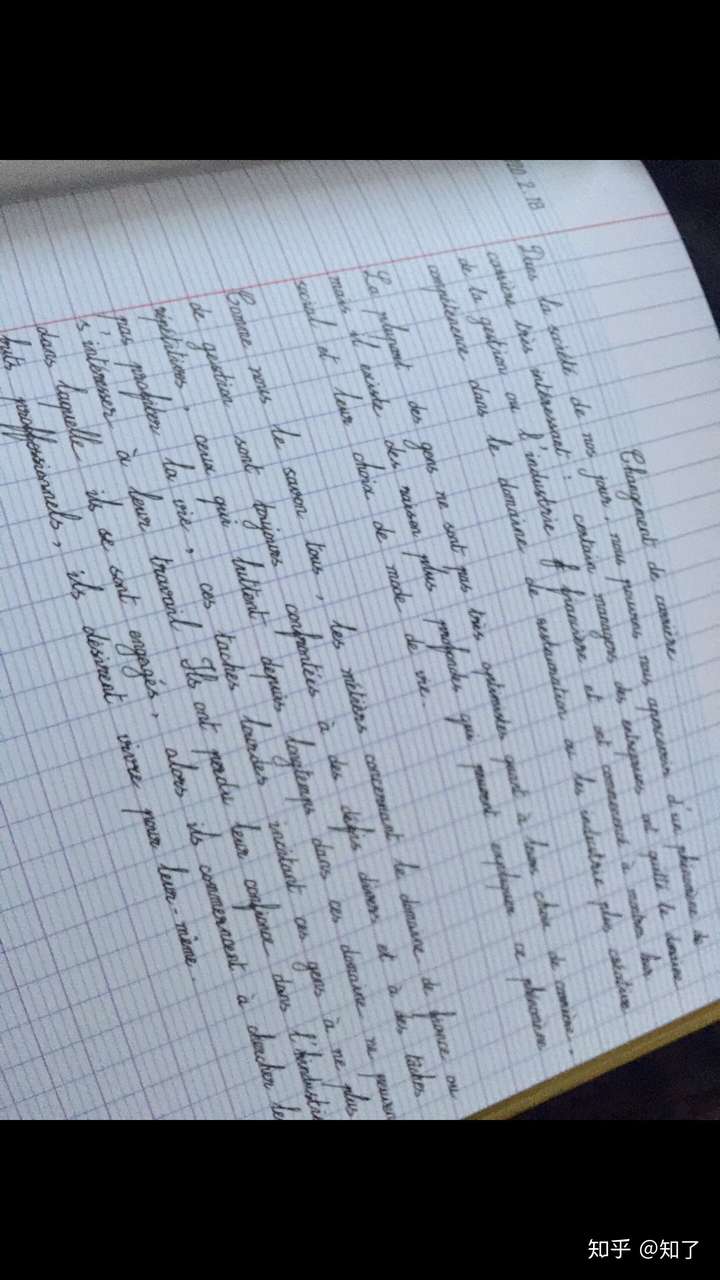 2.18
Changement de carrière
Dans la société de nos jour, nous pouvons nous apercevoir d'un phénomène de
carrière très intéressant : certain managers des entreprises ont quitté le domaine
de la gestion ou l'industrie financière et ont commencé à mettre leur
compétence dans le domaine de restauration ou les industrie plus créative
La plupart des gens ne sont pas très optimistes quant à leur choix de carrière..
mais il existe des raison plus profondes qui peuvent expliquer ce phénomène
social et leur choix de mode de vie.
Comme nous le savon tous, les métiers concernant le domaine de finance ou
de gestion sont toujours confrontées à des défis divers et à des tâches
répétitives, ceux qui luttent depuis longtemps dans ces domaine ne peuven
pas profiter la vie, ces taches lourdes incitant ces gens à ne plus
s'intéresser à leur travail. Ils ont perdu leur confiance dans l'industrie
dans laquelle ils se sont engagés, alors ils commencent à chercher
buts proffessionnels, ils désirent vivre pour leur-même.
知乎 @知了